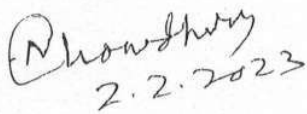 Chowdhury
2.2.2023